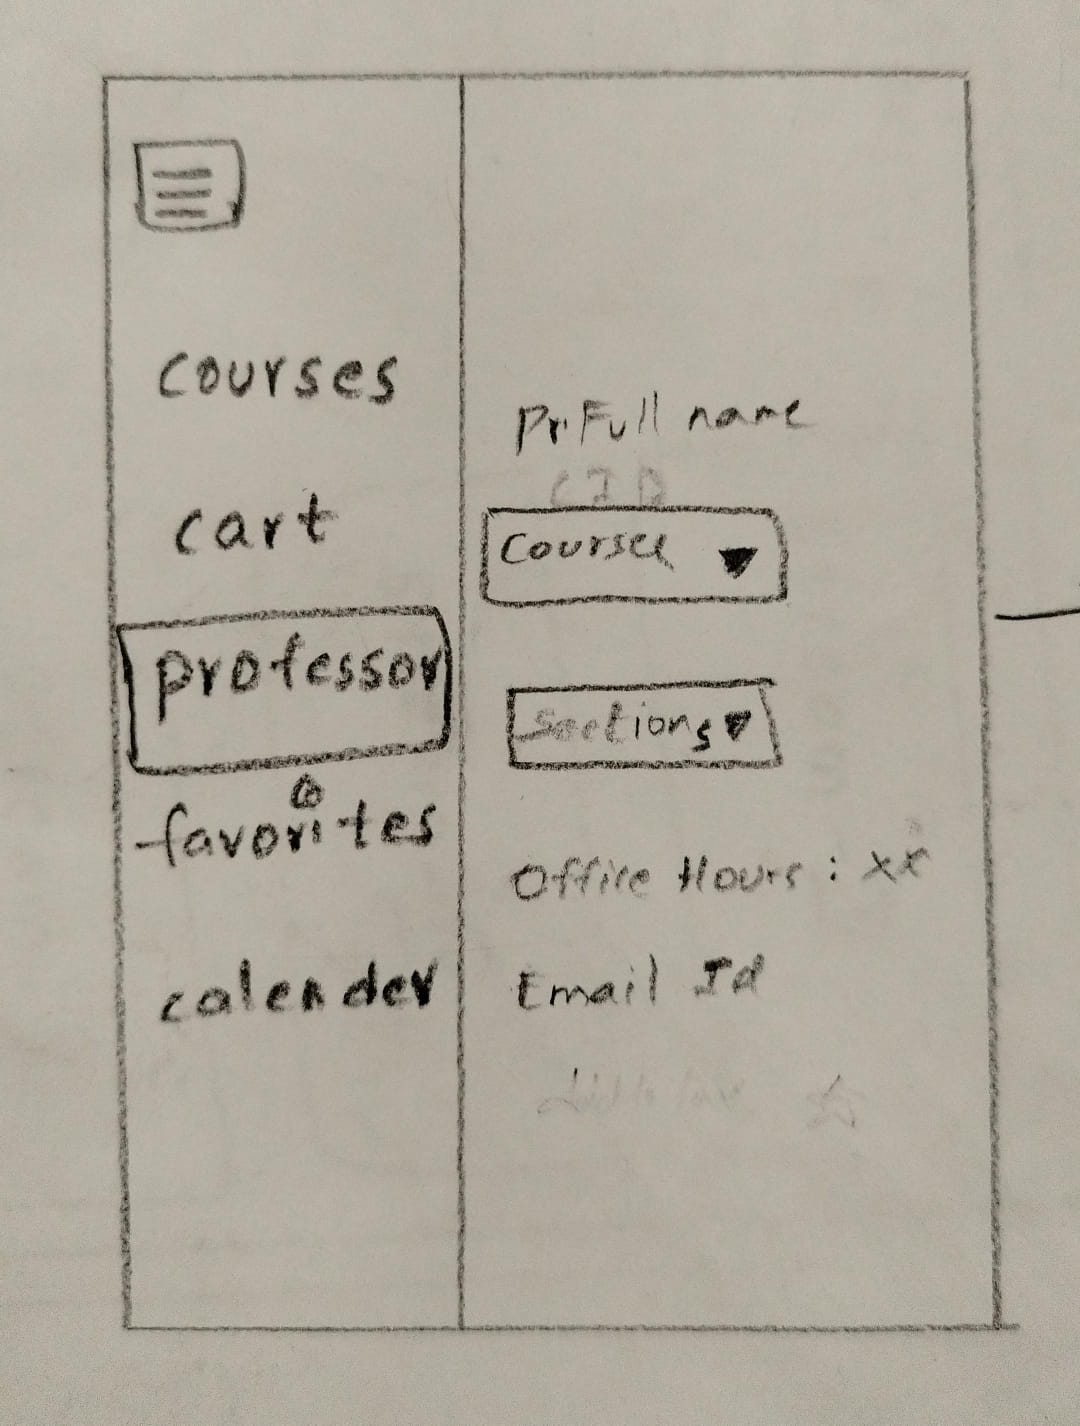 courses
cart
professor
favorites
calender
Pr. Full name
Courses
Sections
Office Hours : xx
Email Id